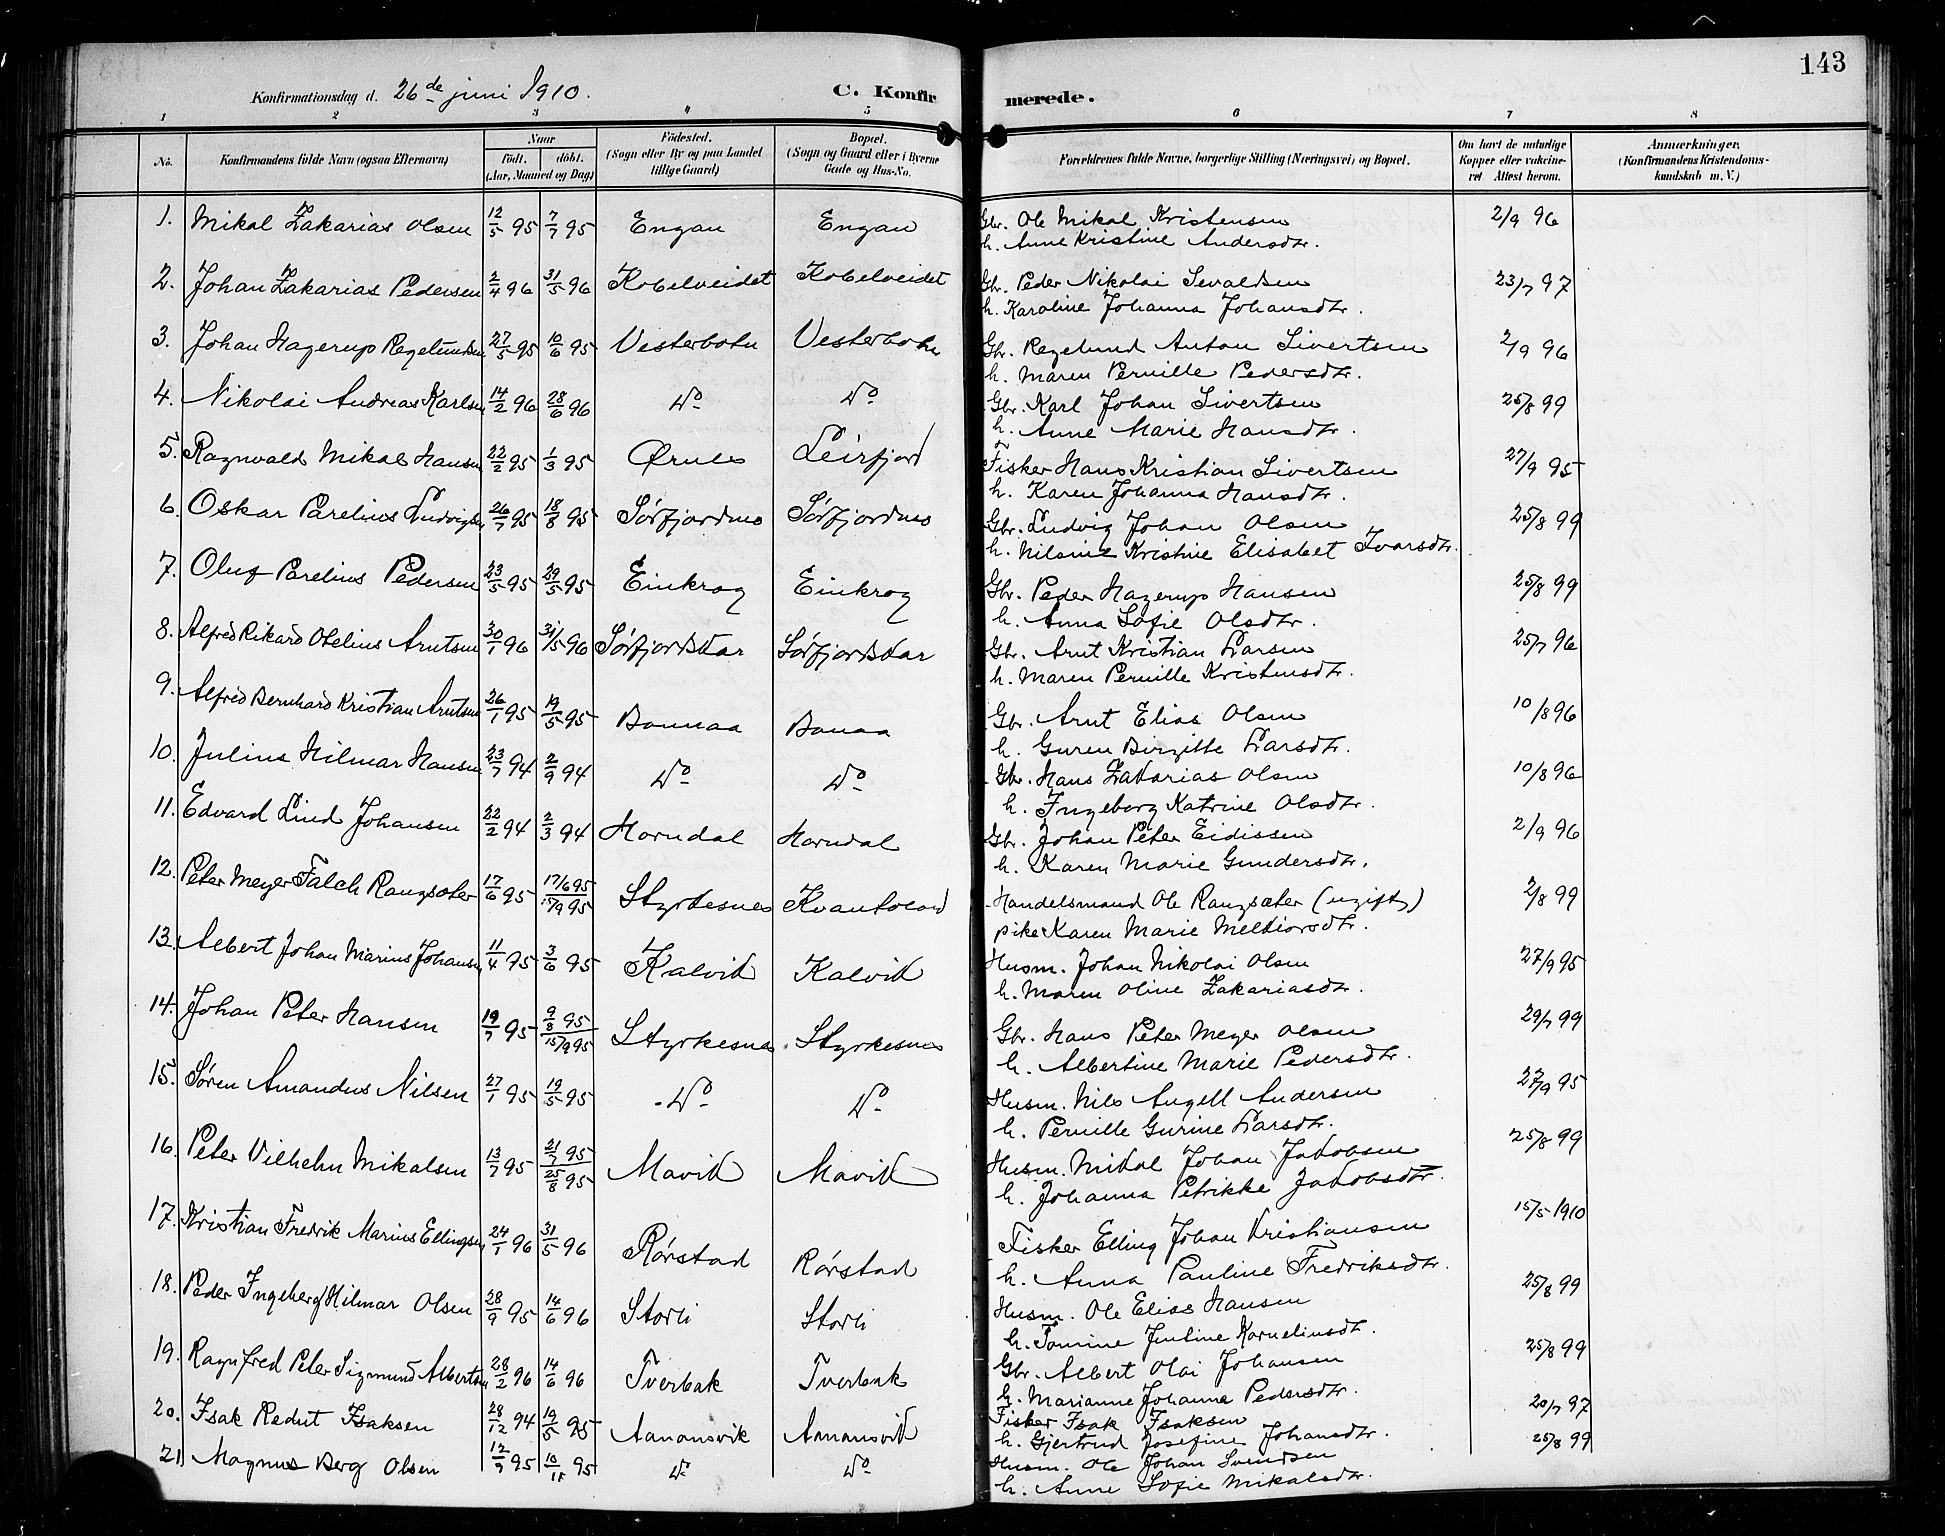 143
Konfirmationsdag d. 26de juni 1910. C. Konfirmerede.
1 2 3 4 5 6 7 8
No. Konfirmandens fulde Navn (ogsaa Efternavn) Naar födt. döbt. (Aar, Maaned og Dag) Födested. (Sogn eller By og paa Landet tillige Gaard) Bopæl. (Sogn og Gaard eller i Byerne Gade og Hus-No. Forældrenes fulde Navne, borgerlige Stilling (Næringsvei) og Bopæl. Om havt de naturlige Kopper eller vakcineret Attest herom. Anmærkninger. (Konfirmandens Kristendomskundskab m. V.)
1. Mikal Zakarias Olsen 12/5 95 7/7 95 Engan Engan Gbr. Ole Mikal Kristensen 2/9 96
h. Anne Kristine Andersdtr.
2. Johan Zakarias Pedersen 2/4 96 31/5 96 Kobelveidet Kobelveidet Gbr. Peder Nikolai Sevaldsen 23/7 97
h. Karoline Johanna Johansdtr.
3. Johan Hagerup Regelundsen 27/5 95 10/6 95 Vesterbotn Vesterbotn Gbr. Regelund Antan Sivertsen 2/9 96
h. Maren Pernille Pedersdtr.
4. Nikolai Andreas Karlsen 14/2 96 28/6 96 Do Do Gbr. Karl Johan Sivertsen 25/8 99
h. Anne Marie Hansdtr.
5. Ragnvald Mikal Hansen 22/2 95 1/3 95 Ørnes Leirfjord Fisker Hans Kristian Sivertsen 27/9 95
h. Karen Johanna Hansdtr.
6. Oskar Parelius Ludvigsen 26/7 95 18/8 95 Sørfjordmo Sørfjordmo Gbr. Ludvig Johan Olsen 25/8 99
h. Nilsine Kristine Elisabet Ivarsdtr.
7. Oluf Parelius Pedersen 23/5 95 29/5 95 Einkrog Einkrog Gbr. Peder Hagerup Hansen 25/8 99
h. Anna Sofie Olsdtr.
8. Alfred Rikard Otelius Arntsen 30/1 96 31/5 96 Sørfjordskar Sørfjordskar Gbr. Arnt Kristian Larsen 25/7 96
h. Maren Pernille Kristensdtr.
9. Alfred Bernhard Kristian Arntsen 26/1 95 19/5 95 Bonnaa Bonaa Gbr. Arnt Elias Olsen 10/8 96
h. Guren Birgitte Larsdtr.
10. Julius Hilmar Hansen 23/7 94 2/9 94 Do Do Gbr. Hans Zakarias Olsen 10/8 96
h. Ingeborg Katrine Olsdtr.
11. Edvard Lind Johansen 22/2 94 2/3 94 Horndal Horndal Gbr. Johan Peter Eidissen 2/9 96
h. Karen Marie Gundersdtr.
12. Peter Meyer Falch Rangsæter 17/6 95 17/6 95 15/9 95 Styrkesnes Kvantoland Handelsmand Ole Rangsæter (ugift) 2/8 99
pike Karen Marie Meltiorsdtr.
13. Albert Johan Marius Johansen 11/4 95 3/6 95 Kalvik Kalvik Husm. Johan Nikolai Olsen 27/9 95
h. Maren Oline Zakariasdtr.
14. Johan Peter Hansen 19/7 95 9/8 95 15/9 95 Styrkesnes Styrkesnes Gbr. Hans Peter Meyer Olsen 29/7 99
h. Albertine Marie Pedersdtr.
15. Søren Amandus Nilsen 27/1 95 19/5 95 Do Do Husm. Nils Angell Andersen 27/9 95
h. Pernille Gurine Larsdtr.
16. Peter Vilhelm Mikalsen 13/7 95 21/7 95 25/8 95 Mavik Mavik Husm. Mikal Johan Jakobsen 25/8 99
h. Johanna Petrikke Jakobsdtr.
17. Kristian Fredrik Marius Ellingsen 24/1 96 31/5 96 Rørstad Rørstad Fisker Elling Johan Kristiansen 15/5 1910
h. Anna Pauline Fredriksdtr.
18. Peder Ingeberg Hilmar Olsen 28/9 95 14/6 96 Storli Storli Husm. Ole Elias Hansen 25/8 99
h. Tomine Juline Korneliusdtr.
19. Ragnfred Peter Sigmund Albertsen 28/2 96 14/6 96 Tverbak Tverbak Gbr. Albert Olai Johansen 25/8 99
h. Marianne Johanna Pedersdtr.
20. Isak Redut Isaksen 28/12 94 19/5 95 Aanansvik Amansvik Fisker Isak Isaksen 20/7 97
h. Gjertrud Josefine Johansdtr.
21 Magnus Berg Olsen 12/9 95 10/11 95 Do Do Husm. Ole Johan Svendsen 25/8 99
h. Anne Sofie Mikalsdtr.